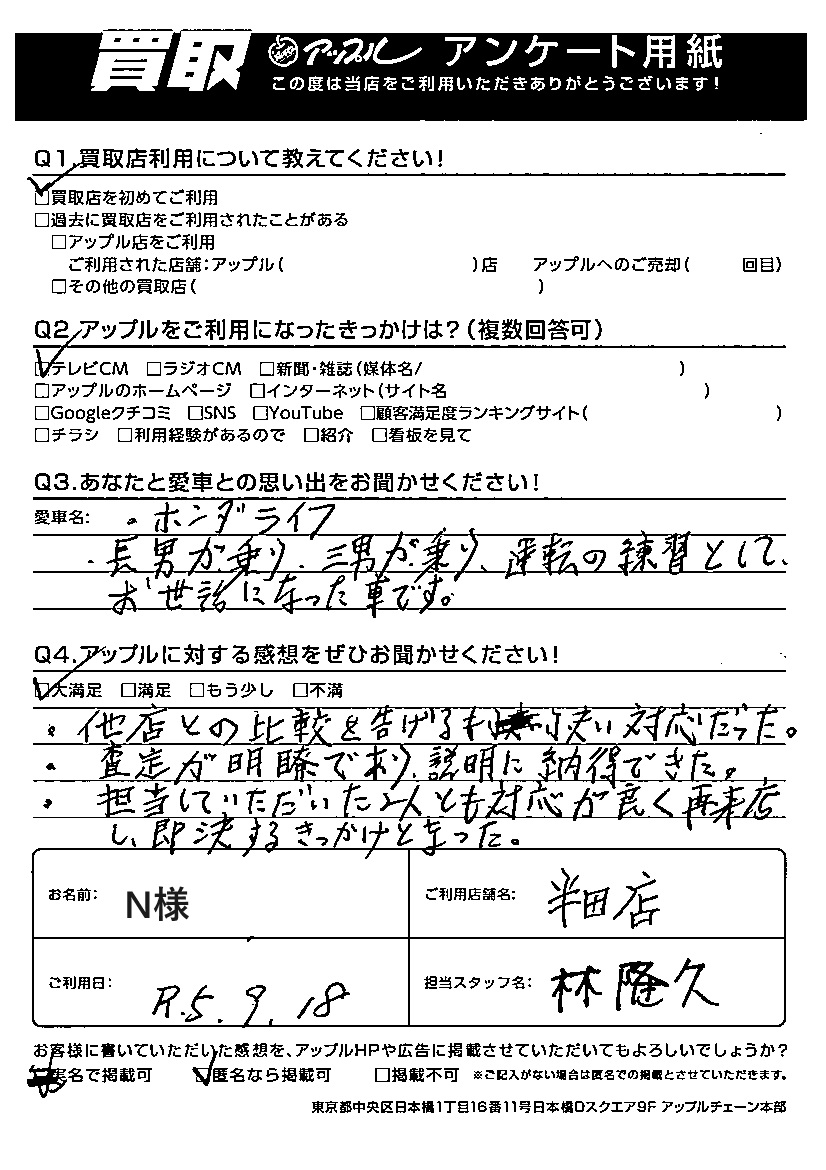 買取 アップル アンケート用紙
この度は当店をご利用いただきありがとうございます!
Q1.買取店利用について教えてください!
☑買取店を初めてご利用
□過去に買取店をご利用されたことがある
□アップル店をご利用
ご利用された店舗:アップル( )店 アップルへのご売却( 回目)
□その他の買取店( )
Q2.アップルをご利用になったきっかけは?(複数回答可)
☑テレビCM □ラジオCM □新聞・雑誌(媒体名/ )
□アップルのホームページ □インターネット(サイト名 )
□Googleクチコミ □SNS □YouTube □顧客満足度ランキングサイト( )
□チラシ □利用経験があるので □紹介 □看板を見て
Q3.あなたと愛車との思い出をお聞かせください!
愛車名: ・ホンダライフ
・長男が乗り、三男が乗り、運転の練習として、
お世話になった車です。
Q4.アップルに対する感想をぜひお聞かせください!
☑大満足 □満足 □もう少し □不満
・他店との比較を告げるも 対応だった。
・査定が明瞭であり、説明に納得できた。
・担当していただいた2人とも対応が良く再来店
し、即決するきっかけとなった。
お名前: N様 ご利用店舗名: 半田店
ご利用日: R.5.9.18 担当スタッフ名: 林隆久
お客様に書いていただいた感想を、アップルHPや広告に掲載させていただいてもよろしいでしょうか?
実名で掲載可 ☑匿名なら掲載可 □掲載不可 ※ご記入がない場合は匿名での掲載とさせていただきます。
東京都中央区日本橋1丁目16番11号日本橋Dスクエア9F アップルチェーン本部